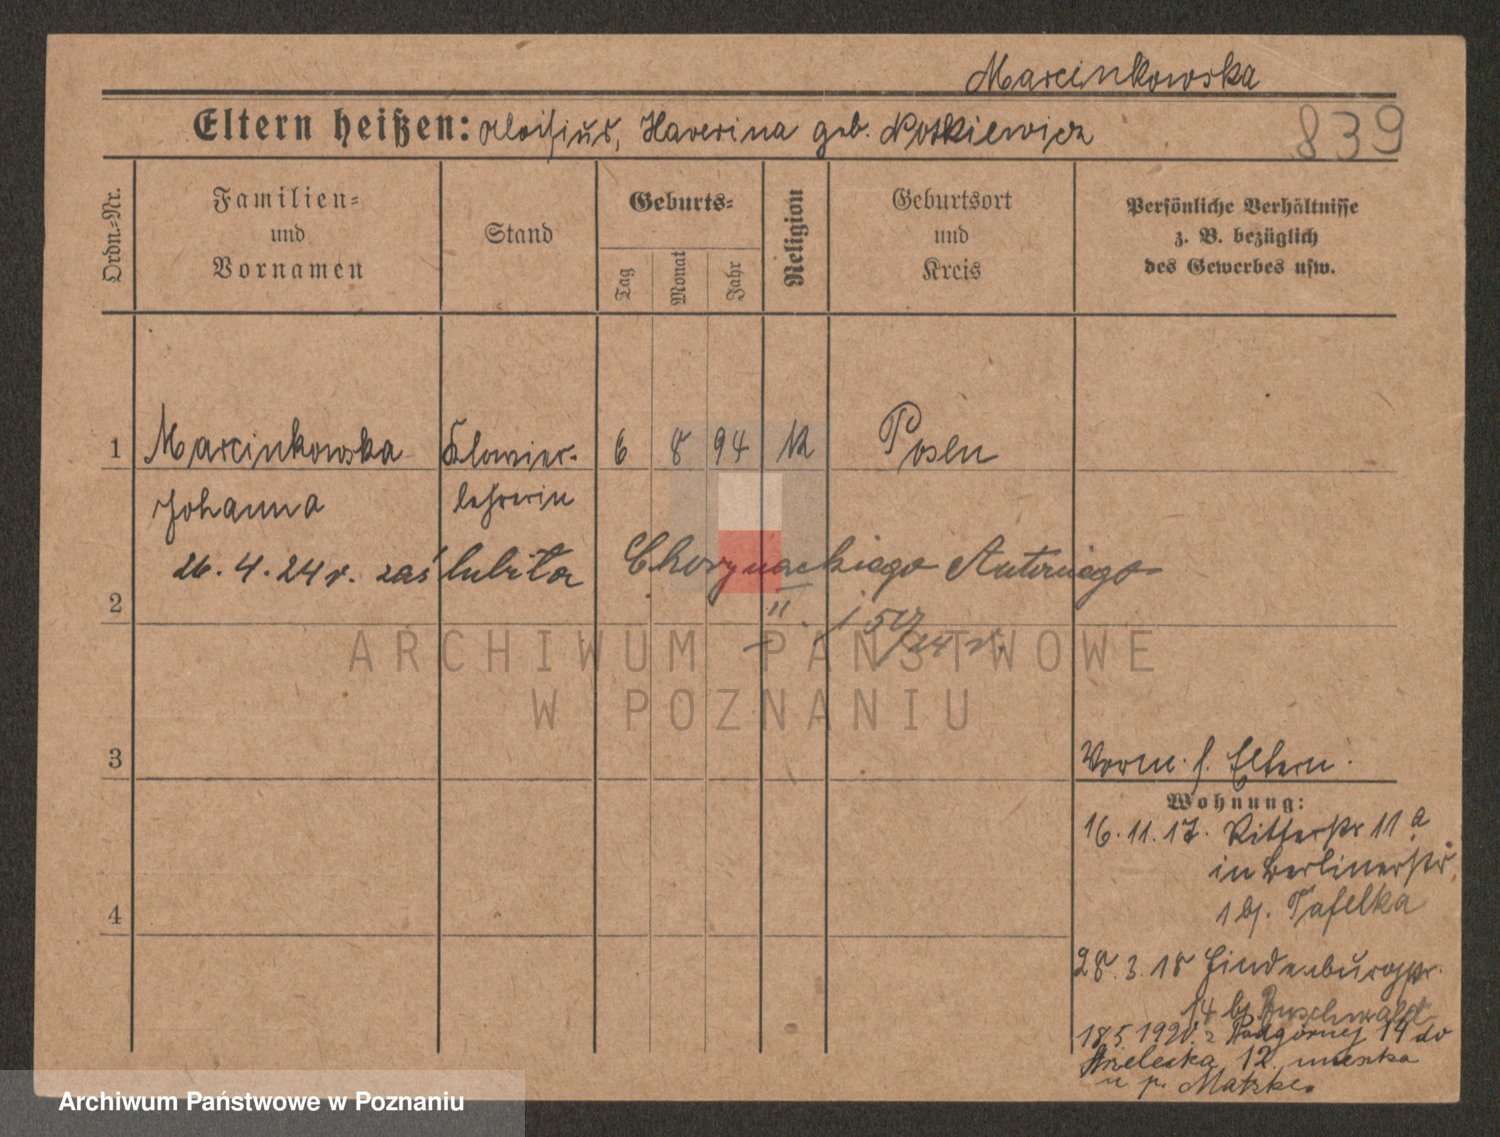 Marcinkowska
Eltern heißen: Aloisius, Xaverina geb. Notkiewicz
839
Ordn.-Nr.
Familien-
und
Vornamen
Stand
Geburts-
Tag
Monat
Jahr
Religion
Geburtsort
und
Kreis
Persönliche Verhältnisse
z. B. bezüglich
des Gewerbes usw.
1 Marcinkowska Klavier- 6 8 94 K Posen
Johanna lehrerin
26.4.24 r. zaślubiła Chorynackiego Antoniego
2
" 5
24 r.
ARCHIWUM PAŃSTWOWE
W POZNANIU
3
Vorm. s. Eltern.
Wohnung:
16.11.17. Ritterstr 11a
in Berlinerstr.
1 bj. Tafelka
4
28.3.18 Hindenburgstr.
14 bj Buschwald
18 5 1920 z Podgórnej 14 do
Strzelecka 12. mieszka
u p. Matzke.
Archiwum Państwowe w Poznaniu